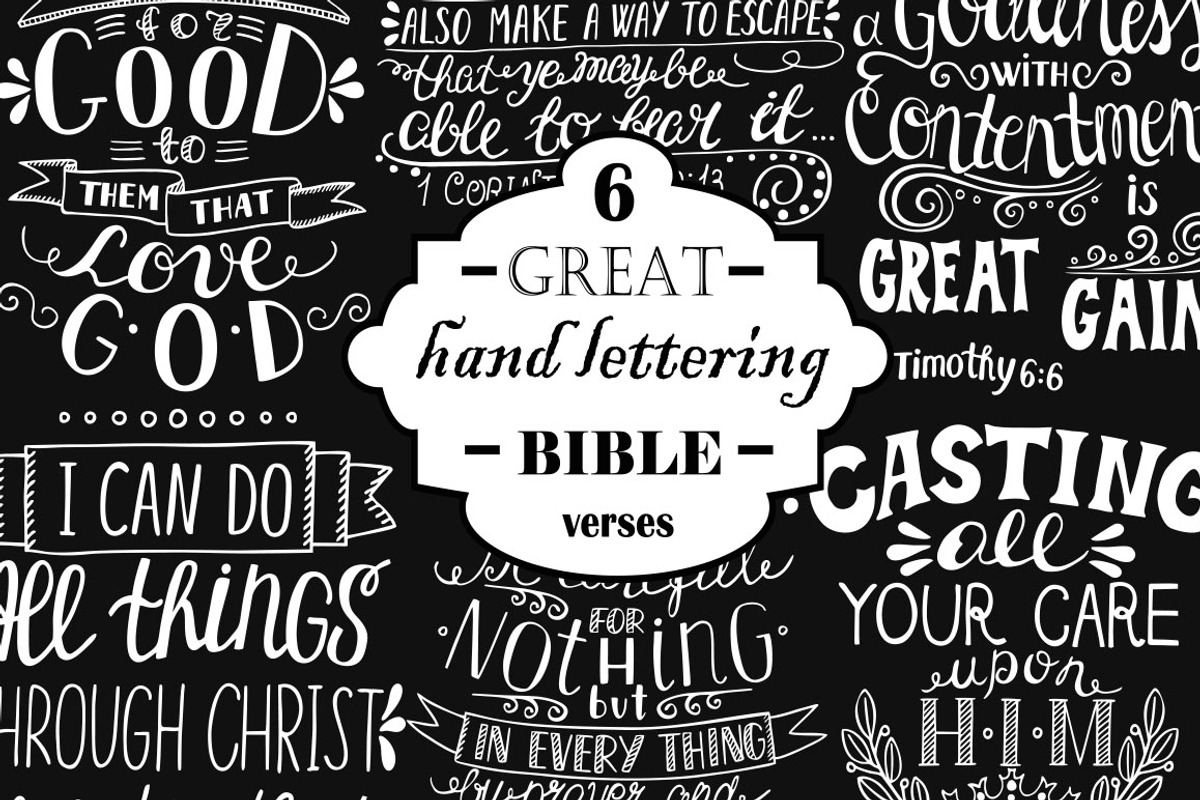 for
GOOD
to
THEM THAT
Love
G·O·D
ALSO MAKE A WAY TO ESCAPE
that ye may be
able to bear it...
1 CORINT 0:13
a Godliness
WITH
Contentmen
is
GREAT
GAIN
Timothy 6:6
6
GREAT
hand lettering
BIBLE
verses
I CAN DO
All things
HROUGH CHRIST
Be careful
FOR
NOTHING
but
IN EVERY THING
CASTING
all
YOUR CARE
upon
H·I·M